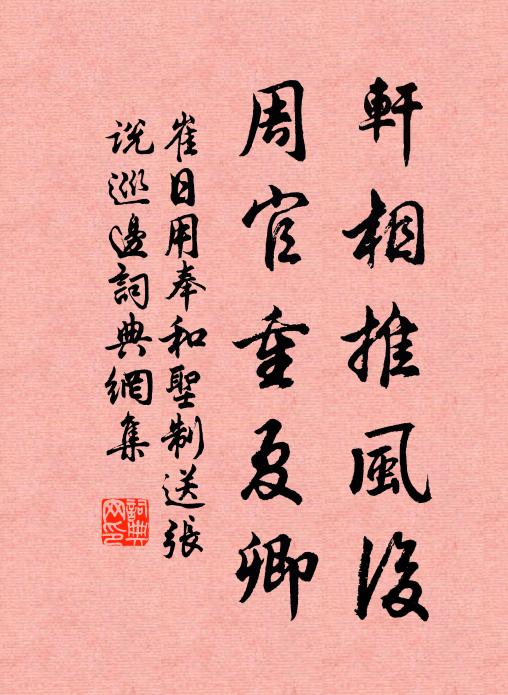 軒相推風後
周官重夏卿
崔日用奉和聖制送張
説巡邊詞典網集
詞典
网印